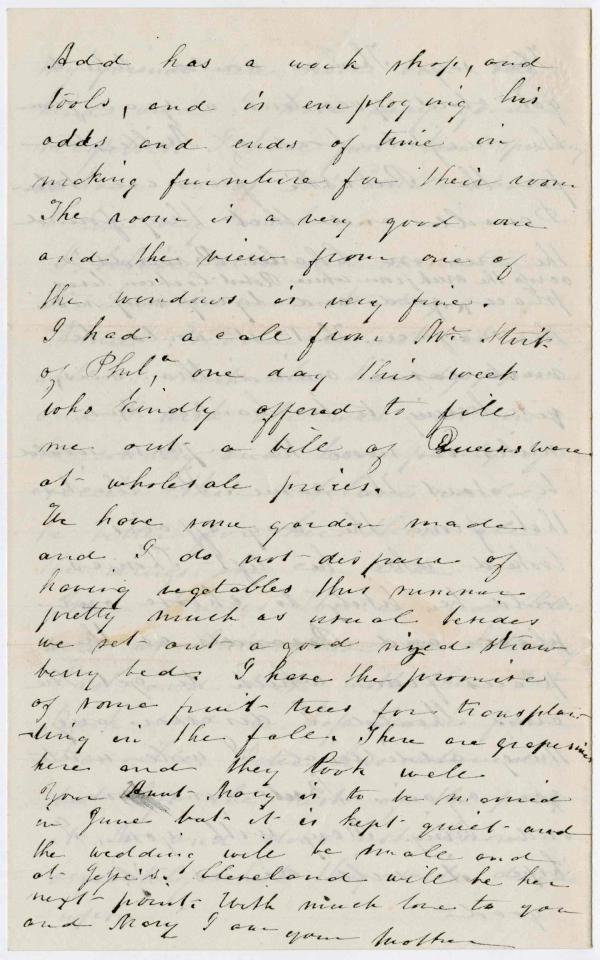 Add has a work shop, and
tools, and is employing his
odds and ends of time in
making furniture for their room
The room is a very good one
and the view from one of
the windows is very fine.
I had a call from Mr
of Phil,a one day this week
who kindly offered to fill
me out a bill of Queensware
at wholesale prices.
We have some garden made
and I do not dispare of
having vegetables this summer
pretty much as usual besides
we set out a good sized straw
berry bed. I have the promise
of some fruit trees for transplan-
-ting in the fall. There are grapevines
here and they look well
Your Aunt Mary is to be married
in June but it is kept quiet and
the wedding will be small and
at Jesse's. Cleveland will be her
next point. With much love to you
and Mary I am your Mother